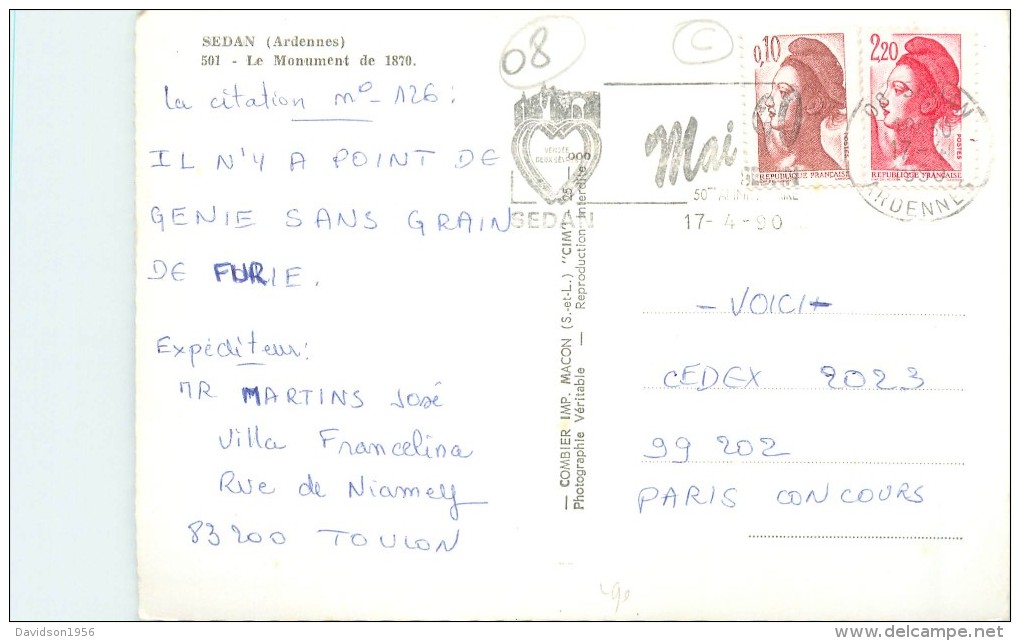 SEDAN (Ardennes)
501 - Le Monument de 1870.
08
C
la citation no-126:
IL N'Y A POINT DE
GENIE SANS GRAIN
DE FURIE.
Expéditeur:
MR MARTINS José
Villa Francelina
Rue de Niamey
83200 TOULON
— COMBIER IMP. MACON (S.-et-L.) "CIM"
Photographie Véritable — Reproduction Interdite
SEDAN
Mai
17-4-90
0,10
REPUBLIQUE FRANÇAISE
2,20
POSTES
REPUBLIQUE FRANÇAISE
ARDENNES
- VOICI -
CEDEX 2023
99 202
PARIS CONCOURS
Davidson1956
delcampe.net